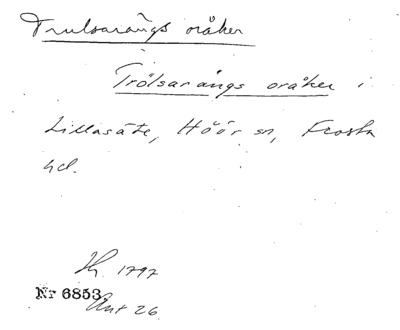 Trulsarängs oråker
Trålsarängs oråker i
Lillasäte, Höör sn, Frosta
hd.
Th. 1797
Nr 6853
Ant 26